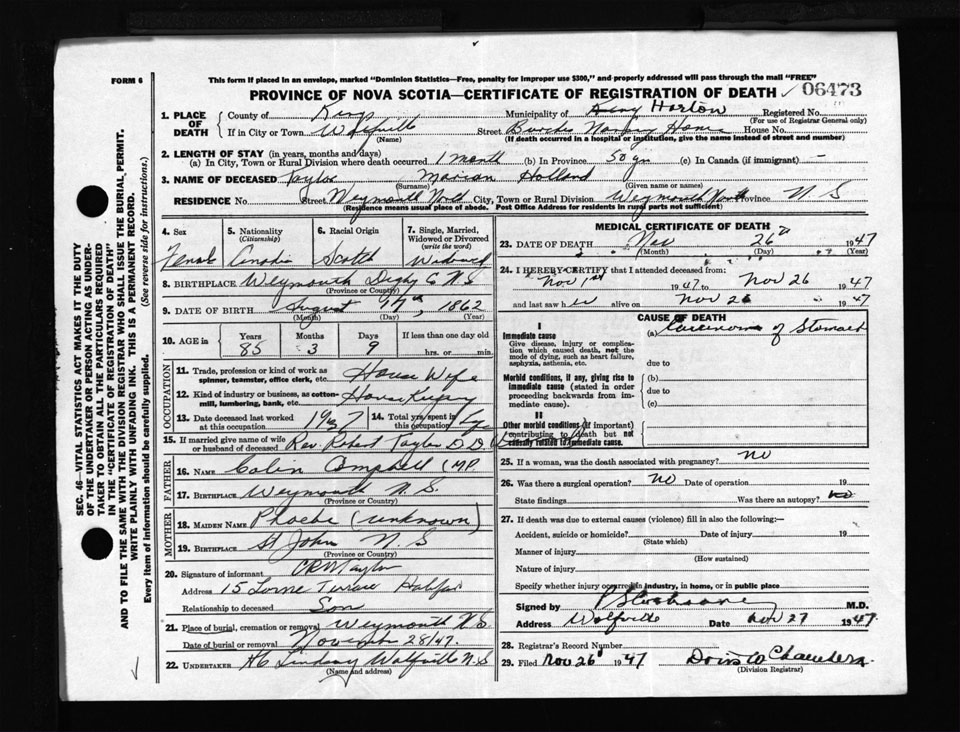 FORM 6
This form if placed in an envelope, marked "Dominion Statistics—Free, penalty for improper use $300," and properly addressed will pass through the mail "FREE"
PROVINCE OF NOVA SCOTIA—CERTIFICATE OF REGISTRATION OF DEATH 06473
1. PLACE OF DEATH
County of Kings Municipality of Horton Registered No.
(For use of Registrar General only)
If in City or Town Wolfville Street Nursing Home House No.
(Name) (If death occurred in a hospital or institution, give the name instead of street and number)
2. LENGTH OF STAY (in years, months and days)
(a) In City, Town or Rural Division where death occurred 1 month (b) In Province 50 yrs (c) In Canada (if immigrant) —
3. NAME OF DECEASED Taylor Marion Holland
(Surname) (Given name or names)
RESIDENCE No. Street Weymouth North City, Town or Rural Division Weymouth North Province N S
(Residence means usual place of abode. Post Office Address for residents in rural parts not sufficient)
4. Sex
Female
5. Nationality (Citizenship)
Canadian
6. Racial Origin
Scotch
7. Single, Married, Widowed or Divorced (write the word)
Widowed
8. BIRTHPLACE Weymouth Digby Co N S
9. DATE OF BIRTH August 17th, 1862
(Month) (Day) (Year)
10. AGE in Years Months Days If less than one day old
85 3 9 hrs. or min.
OCCUPATION
11. Trade, profession or kind of work as spinner, teamster, office clerk, etc. House Wife
12. Kind of industry or business, as cotton-mill, lumbering, bank, etc. House Keeping
13. Date deceased last worked at this occupation 1937
14. Total yrs. spent in this occupation
15. If married give name of wife or husband of deceased Rev. Robert Taylor D.D.
FATHER
16. NAME Colin Campbell (MP)
17. BIRTHPLACE Weymouth N. S.
(Province or Country)
MOTHER
18. MAIDEN NAME Phoebe (unknown)
19. BIRTHPLACE St John N S
(Province or Country)
20. Signature of informant C R M Taylor
Address 15 Lorne Terrace Halifax
Relationship to deceased Son
21. Place of burial, cremation or removal Weymouth N.S.
Date of burial or removal November 28/47.
22. UNDERTAKER Lindsay Wolfville N.S
(Name and address)
MEDICAL CERTIFICATE OF DEATH
23. DATE OF DEATH Nov 26th 1947
(Month) (Day) (Year)
24. I HEREBY CERTIFY that I attended deceased from:
Nov 1st 1947 to Nov 26 1947
and last saw her alive on Nov 26 1947
CAUSE OF DEATH
I
Immediate cause
Give disease, injury or complication which caused death, not the mode of dying, such as heart failure, asphyxia, asthenia, etc.
(a) Carcinoma of Stomach
due to
Morbid conditions, if any, giving rise to immediate cause (stated in order proceeding backwards from immediate cause).
(b)
due to
(c)
II
Other morbid conditions (if important) contributing to death but not causally related to immediate cause.
25. If a woman, was the death associated with pregnancy? no
26. Was there a surgical operation? no Date of operation 19
State findings Was there an autopsy? no
27. If death was due to external causes (violence) fill in also the following:—
Accident, suicide or homicide? Date of injury 19
(State which)
Manner of injury
(How sustained)
Nature of injury
Specify whether injury occurred in industry, in home, or in public place
Signed by M.D.
Address Wolfville Date Nov 27 1947
28. Registrar's Record Number
29. Filed Nov 26 1947 Doris W Chambers
(Division Registrar)
SEC. 46—VITAL STATISTICS ACT MAKES IT THE DUTY
OF THE UNDERTAKER OR PERSON ACTING AS UNDER-
TAKER TO OBTAIN ALL THE PARTICULARS REQUIRED
IN THE "CERTIFICATE OF REGISTRATION OF DEATH"
AND TO FILE THE SAME WITH THE DIVISION REGISTRAR WHO SHALL ISSUE THE BURIAL PERMIT.
WRITE PLAINLY WITH UNFADING INK. THIS IS A PERMANENT RECORD.
Every item of information should be carefully supplied. (See reverse side for instructions.)